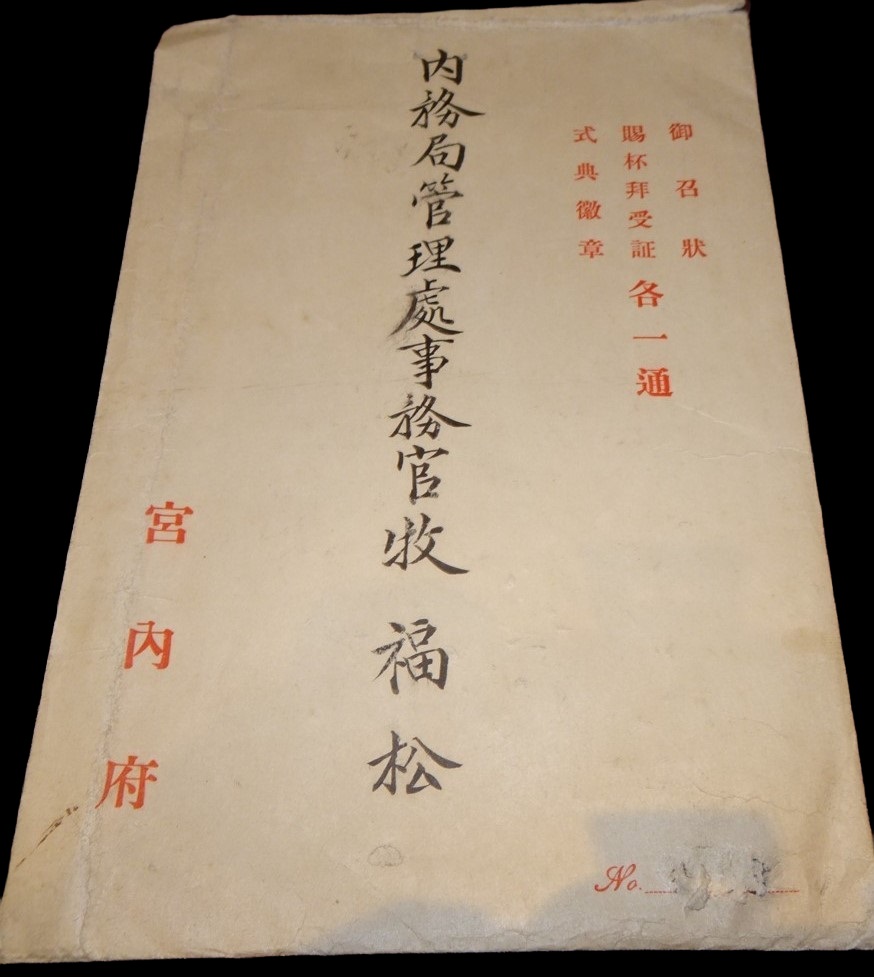 御召狀
賜杯拜受証
式典徽章
各一通
内務局管理處事務官牧 福松
宮內府
No.